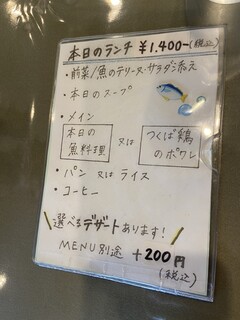 本日のランチ ¥1.400-(税込)
・前菜/魚のテリーヌ・サラダ添え
・本日のスープ
・メイン
本日の魚料理 又は つくば鶏のポワレ
・パン 又は ライス
・コーヒー
選べるデザートあります!
MENU別途 +200円
(税込)